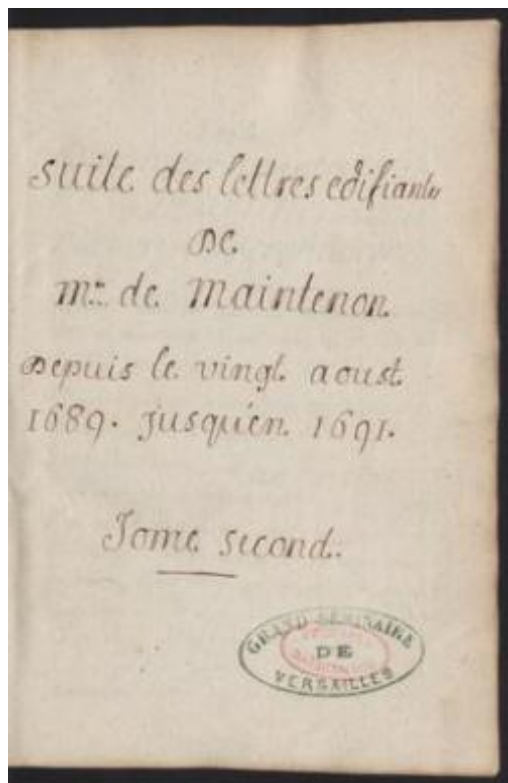 suite des lettres edifiantes
De
mᵉ. de Maintenon
Depuis le vingt aoust
1689. jusqu'en 1691.
Tome second.
GRAND SEMINAIRE
DE
VERSAILLES